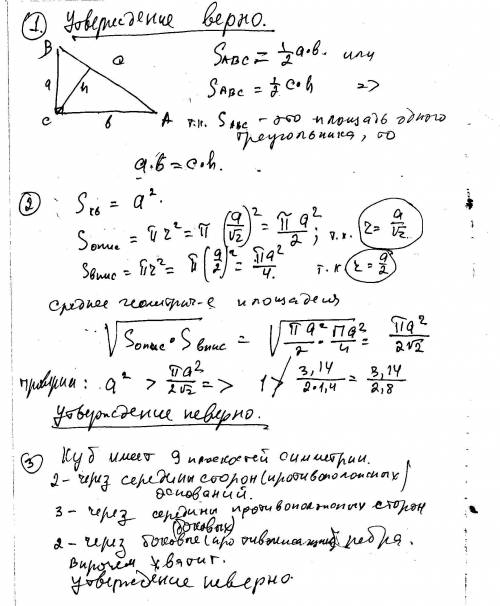 1. Утверждение верно.
B
a
Q
h
C
b
A
S_ABC = 1/2 a·b. или
S_ABC = 1/2 c·h =>
т.к. S_ABC - это площадь одного
треугольника, то
a·b = c·h.
2 S_кв = a².
S_опис = πr² = π (a/√2)² = πa²/2; т.к. r = a/√2
S_впис = πr² = π (a/2)² = πa²/4. т.к r = a/2
среднее геометрич-е площадей
√(S_опис · S_впис) = √(πa²/2 · πa²/4) = πa²/2√2
проверим: a² > πa²/2√2 => 1 > 3,14/2·1,4 = 3,14/2,8
Утверждение неверно.
3 Куб имеет 9 плоскостей симметрии.
2 - через середины сторон (противоположных)
оснований.
3 - через середины противоположных сторон
(боковых)
2 - через боковые (противолежащие) ребра.
Впрочем хватит.
Утверждение неверно.